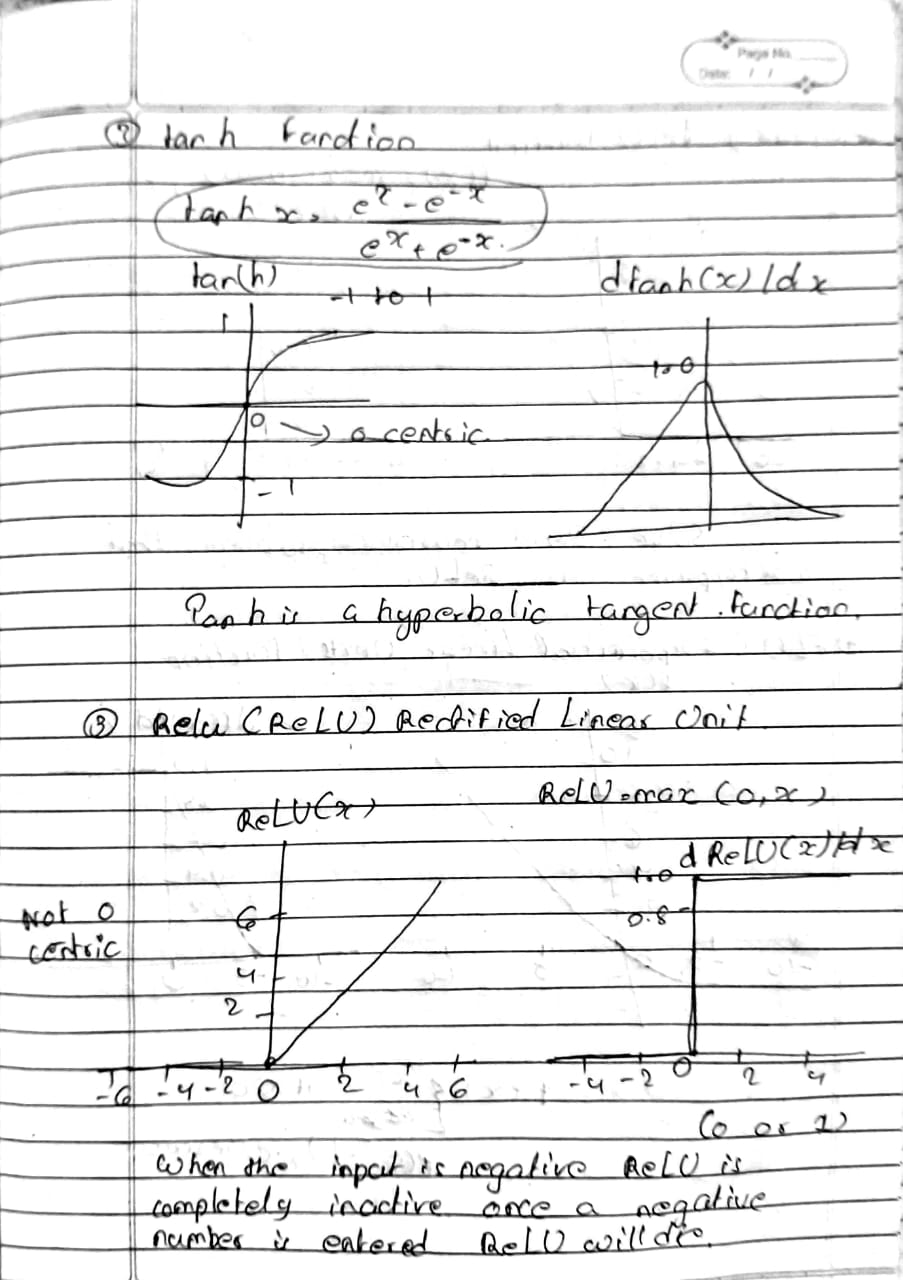 Page No.
Date: / /
② tanh function
tanh x = e^x - e^-x / e^x + e^-x
tan(h)
dtanh(x)/dx
-1 to 1
1
1.0
0 → 0 centric
-1
Tanh is a hyperbolic tangent function.
③ Relu (ReLU) Rectified Linear Unit
ReLU = max (0, x)
ReLU(x)
d ReLU(x)/dx
1.0
Not 0
centric
6
0.8
4
2
-6 -4 -2 0 2 4 6
-4 -2 0 2 4
(0 or 1)
When the input is negative ReLU is
completely inactive once a negative
number is entered ReLU will die.